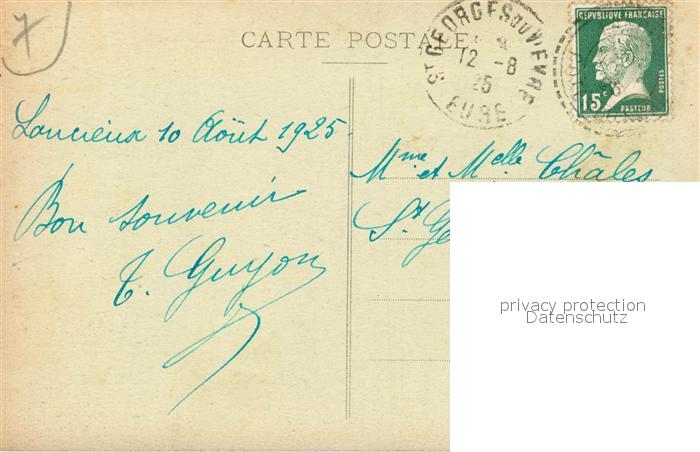 7
CARTE POSTALE
ST GEORGES DU VIEVRE
12 -8
25
EURE
REPVBLIQVE FRANÇAISE
POSTES
15c
PASTEUR
Lancieux 10 Août 1925
Mme et Melle Châles
Bon souvenir
St Ge
T. Guyon
privacy protection
Datenschutz